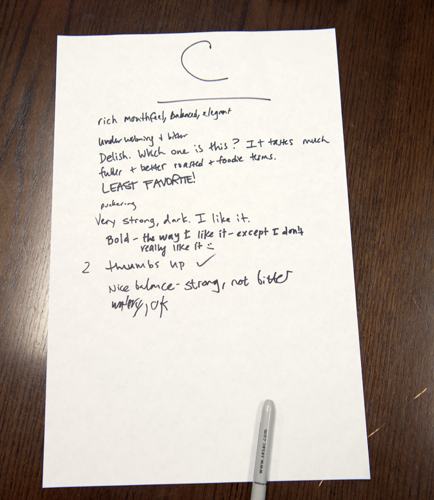 C
rich mouthfeel, Balanced, elegant
Underwhelming + bitter
Delish. Which one is this? It tastes much
fuller + better roasted + foodie terms.
LEAST FAVORITE!
puckering
Very strong, dark. I like it.
Bold - the way I like it - except I don't
really like it :)
2 thumbs up ✓
Nice balance - strong, not bitter
, ok